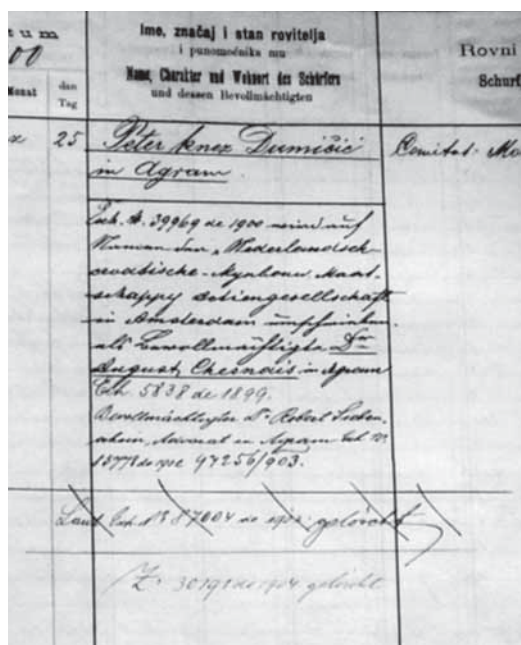 tum
00
Ime, značaj i stan rovitelja
i punomoćnika mu
Name, Charakter und Wohnort des Schürfers
und dessen Bevollmächtigten
Rovni
Schurf
Monat
dan
Tag
25
Peter knez Dumičić
in Agram
Comitat: Mo
Exh. N. 39969 de 1900 wird auf
Namen der „Nederlandsch
croatische Mynbouw Maat-
schappij Actiengesellschaft
in Amsterdam umschrieben
als Bevollmächtigte Dr
August Chesnais in Agram
Exh. 5838 de 1899.
Bevollmächtigter Dr Robert
Advocat in Agram Exh. N.
97256/903.
Laut Exh. No 87004 de gelöscht
Z. de 1904 gelöscht